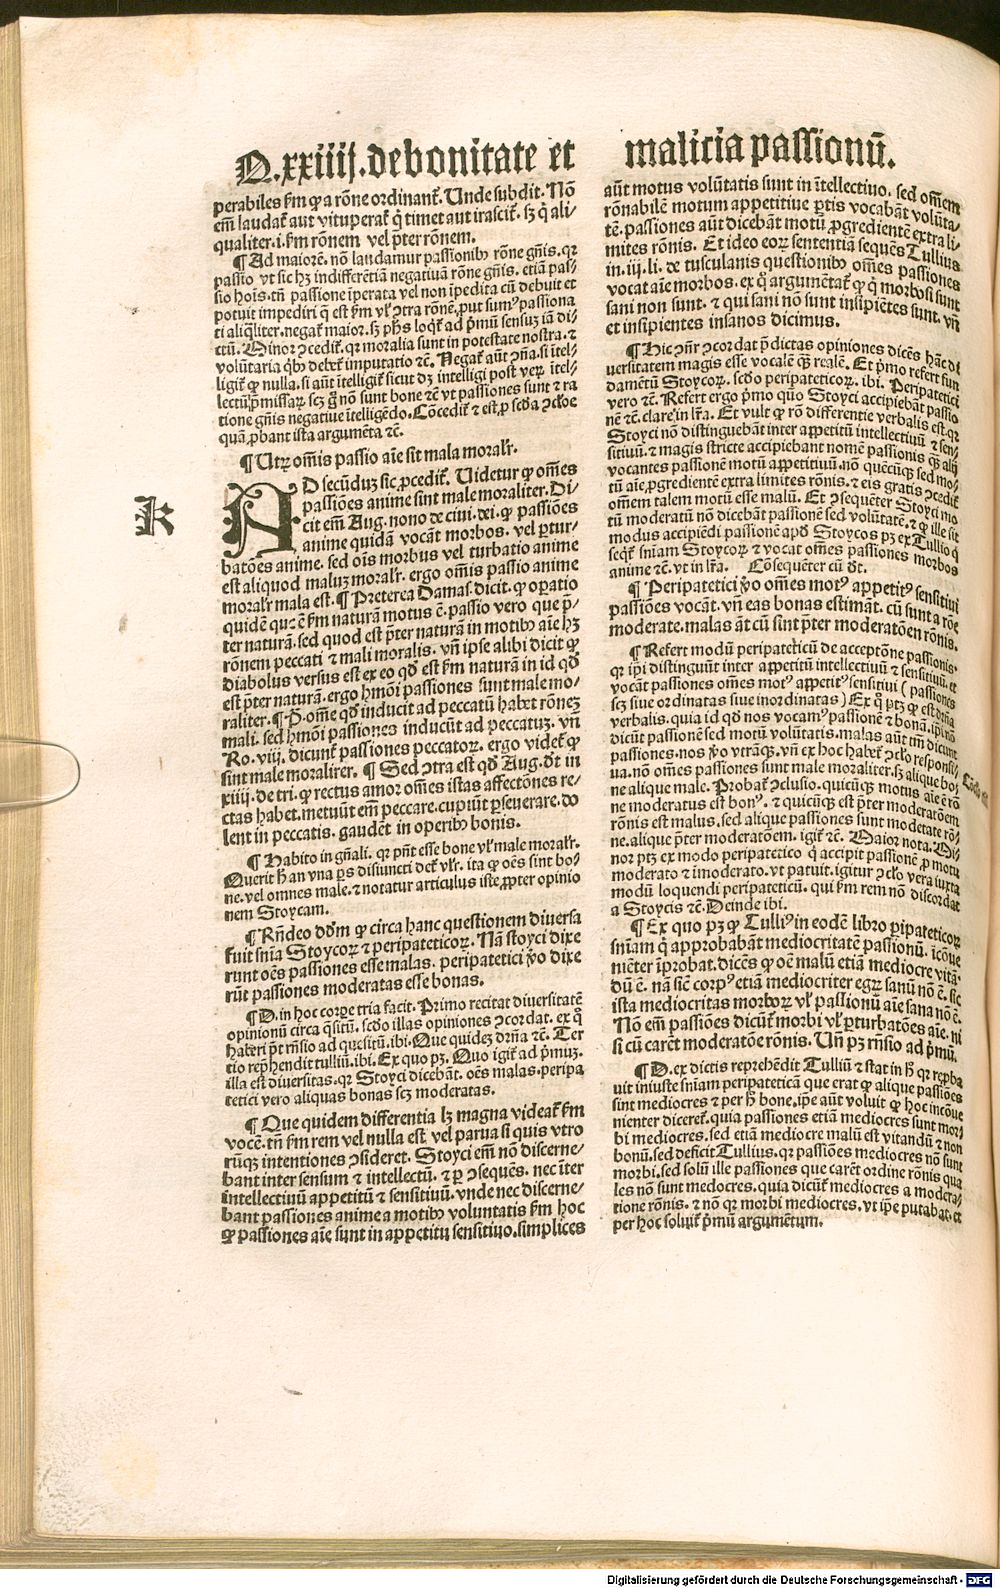 Q.xxiiij.de bonitate et
perabiles s̄m ꝙ a rōne ordinant̄. Unde subdit. Nō
em̄ laudat̄ aut vituperat̄ q̇ timet aut irascit̄. sꝫ q̇ ali⸗
qualiter.i.s̄m rōnem vel p̄ter rōnem.
¶ Ad maiorē. nō laudamur passionibꝫ rōne gn̄is. qꝛ
passio vt sic hꝫ indifferētiā negatiuā rōne gn̄is. etiā pas⸗
sio hoīs. tn̄ passione īperata vel non īpedita cū debuit et
potuit impediri q̄ est s̄m vl̓ ↄtra rōnē, put sumꝰ passiona
ti aliqͥliter. negat̄ maior. sꝫ ph̄s loqt̄ ad p̄mū sensuꝫ iā di⸗
ctū. Minor ↄcedit̄. qꝛ moralia sunt in potestate nostra. ⁊
volūtaria qͥbꝫ debet̄ imputatio ⁊c̄. Negat̄ aūt ↄn̄a. si ītel⸗
ligit̄ ꝙ nulla. si aūt ītelligit̄ sicut dꝫ intelligi post verꝫ ītel⸗
lectū p̄missaꝝ scꝫ ꝙ nō sunt bone ⁊c̄ vt passiones sunt ⁊ ra
tione gn̄is negatiue ītelligēdo. Cōcedit̄ ⁊ est ꝓ sc̄da ↄcl̓oe
quā ꝓbant ista argumēta ⁊c̄.
¶ Utꝝ om̄is passio aīe sit mala moral̓r.
k
AD secūduꝫ sic ꝓcedit̄. Uidetur ꝙ om̄es
passiões anime sint male moraliter. Di⸗
cit em̄ Aug. nono de ciui. dei. ꝙ passiões
anime quidā vocāt morbos. vel ꝑtur⸗
batões anime. sed oīs morbus vel turbatio anime
est aliquod maluꝫ moral̓r. ergo om̄is passio anime
moral̓r mala est. ¶ Preterea Damas. dicit. ꝙ oꝑatio
quidē que ē s̄m naturā motus ē. passio vero que p̄⸗
ter naturā. sed quod est p̄ter naturā in motibꝫ aīe hꝫ
rōnem peccati ⁊ mali moralis. vn̄ ipse alibi dicit ꝙ
diabolus versus est ex eo qd̄ est s̄m naturā in id qd̄
est p̄ter naturā. ergo hmōi passiones sunt male mo⸗
raliter. ¶ P. om̄e qd̄ inducit ad peccatū habet rōneꝫ
mali. sed hmōi passiones inducūt ad peccatuꝫ. vn̄
Ro. viij. dicunt̄ passiones peccatoꝝ. ergo videt̄ ꝙ
sint male moralirer. ¶ Sed ↄtra est qd̄ Aug. dt̄ in
xiiij. de tri. ꝙ rectus amor om̄es istas affectōnes re⸗
ctas habet. metuūt em̄ peccare. cupiūt ꝑseuerare. do
lent in peccatis. gaudēt in operibꝫ bonis.
¶ Habito in gn̄ali. qꝛ pn̄t esse bone vl̓ male moral̓r.
Querit h̄ an vna ꝑs disiuncti dcēt vl̓r. ita ꝙ oēs sint bo⸗
ne. vel omnes male. ⁊ notatur articulus iste ꝓpter opinio
nem Stoycam.
¶ Rn̄deo dd̄m ꝙ circa hanc questionem diuersa
fuit sn̄ia Stoycoꝝ ⁊ peripateticoꝝ. Nā stoyci dixe
runt oēs passiones esse malas. peripatetici v̄o dixe
rūt passiones moderatas esse bonas.
¶ D. in hoc corꝑe tria facit. Primo recitat diuersitatē
opinionū circa q̄situ̅. scd̄o illas opiniones ↄcordat. ex q̇
haberi p̄t rn̄sio ad quesitū. ibi. Que quideꝫ drn̄a ⁊c̄. Ter
tio rep̄hendit tulliū. ibi. Ex quo pꝫ. Quo igit̄ ad p̄muꝫ.
illa est diuersitas. qꝛ Stoyci dicebāt. oēs malas. peripa
tetici vero aliquas bonas scꝫ moderatas.
¶ Que quidem differentia lꝫ magna videat̄ s̄m
vocē. tn̄ s̄m rem vel nulla est vel parua si quis vtro
rūqꝫ intentiones ↄsideret. Stoyci em̄ nō discerne⸗
bant inter sensum ⁊ intellectū. ⁊ ꝑ ↄsequēs. nec īter
intellectiuū appetitū ⁊ sensitiuū. vnde nec discerne⸗
bant passiones anime a motibꝫ voluntatis s̄m hoc
ꝙ passiones aīe sunt in appetitu sensitiuo. simplices
malicia passionū.
aūt motus volūtatis sunt in ītellectiuo. sed om̄em
rōnabilē motum appetitiue ꝑtis vocabāt volūta⸗
tē. passiones aūt dicebāt motū ꝓgredientē extra li⸗
mites rōnis. Et ideo eoꝝ sententiā sequēs Tullius
in .iij. li. de tusculanis questionibꝫ om̄es passiones
vocat aīe morbos. ex q̇ argumētat̄ ꝙ q̇ morbosi sunt
sani non sunt. ⁊ qui sani nō sunt insipiētes sunt. vn̄
et insipientes insanos dicimus.
¶ Hic ↄn̄r ↄcordat p̄dictas opiniones dicēs hāc di
uersitatem magis esse vocalē qꝫ realē. Et p̄mo refert fun
damētū Stoycoꝝ. scd̄o peripateticoꝝ. ibi. Peripatetici
vero ⁊c̄. Refert ergo p̄mo quō Stoyci accipiebāt passio
nē ⁊c̄. clare in lr̄a. Et vult ꝙ rō differentie verbalis est. qꝛ
Stoyci nō distinguebāt inter appetitū intellectiuū ⁊ sen⸗
sitiuū. ⁊ magis stricte accipiebant nomē passionis qꝫ alij
vocantes passionē motū appetitiuū. nō quēcūqꝫ sed mo⸗
tū aīe ꝓgredientē extra limites rōnis. ⁊ eis gratis ↄcedit̄
om̄em talem motū esse malū. Et ↄsequēter Stoyci mo
tū moderatū nō dicebāt passionē sed volūtatē. ⁊ ꝙ ille sit
modus accipiēdi passionē apd̓ Stoycos pꝫ ex Tullio q̇
seqt̄ sn̄iam Stoycoꝝ ⁊ vocat om̄es passiones morbos
anime ⁊c̄. vt in lr̄a. Cōsequēter cū dt̄.
¶ Peripatetici v̄o om̄es motꝰ appetitꝰ sensitiui
passiões vocāt. vn̄ eas bonas estimāt. cū sunt a rōe
moderate. malas āt cū sint p̄ter moderatōen rōnis.
¶ Refert modū peripateticū de acceptōne passionis.
qꝛ ip̄i distinguūt inter appetitū intellectiuū ⁊ sensitiuū. et
vocāt passiones om̄es motꝰ appetitꝰ sensitiui (passiones
scꝫ siue ordinatas siue inordinatas) Ex q̇ ptꝫ ꝙ est drn̄a
verbalis. quia id qd̄ nos vocamꝰ passionē ⁊ bonā. ip̄i nō
dicūt passionē sed motū volūtatis. malas aūt tm̄ dicunt
passiones. nos v̄o vtrāqꝫ. vn̄ ex hoc habet̄ ↄcl̓o responsi⸗
ua. nō om̄es passiones sunt male moraliter. sꝫ alique bo⸗
ne alique male. Probat̄ ↄclusio. quicūqꝫ motus aīe ē rō
ne moderatus est bonꝰ. ⁊ quicūqꝫ est p̄ter moderatōem
rōnis est malus. sed alique passiones sunt modetate rō⸗
ne. alique p̄ter moderatōem. igit̄ ⁊c̄. Maior nota. Mi⸗
nor ptꝫ ex modo peripatetico q̇ accipit passionē ꝓ motu
moderato ⁊ īmoderato. vt patuit. igitur ↄcl̓o vera iuxta
modū loquendi peripateticū. qui s̄m rem nō discordat
a Stoycis ⁊c̄. Deinde ibi.
¶ Ex quo pꝫ ꝙ Tulliꝰ in eodē libro ꝑipateticoꝝ
sn̄iam q̇ approbabāt mediocritatē passionū. īcōue
niēter īprobat. dicēs ꝙ oē malū etiā mediocre vitā⸗
dū ē. nā sic̄ corpꝰ etiā mediocriter egꝝ sanū nō ē. sic
ista mediocritas morboꝝ vl̓ passionū aīe sana nō ē.
Nō em̄ passiões dicūt̄ morbi vl̓ ꝑturbatões aīe. ni
si cū carēt moderatōe rōnis. Un̄ pꝫ rn̄sio ad p̄mū.
¶ D. ex dictis reprehēdit Tulliū ⁊ stat in h̄ qꝛ rep̄ba
uit iniuste sn̄iam peripateticā que erat ꝙ alique passiões
sint mediocres ⁊ per h̄ bone. ip̄e aūt voluit ꝙ hoc incōue
nienter diceret̄. quia passiones etiā mediocres sunt mor⸗
bi mediocres. sed etiā mediocre malū est vitandū ⁊ non
bonū. sed deficit Tullius. qꝛ passiões mediocres nō sunt
morbi. sed solū ille passiones que carēt ordine rōnis qua
les nō sunt mediocres. quia dicūt̄ mediocres a modera⸗
tione rōnis. ⁊ nō qꝛ morbi mediocres. vt ip̄e putabat. et
per hoc soluit̄ p̄mū argumētum.
Digitalisierung gefördert durch die Deutsche Forschungsgemeinschaft - DFG